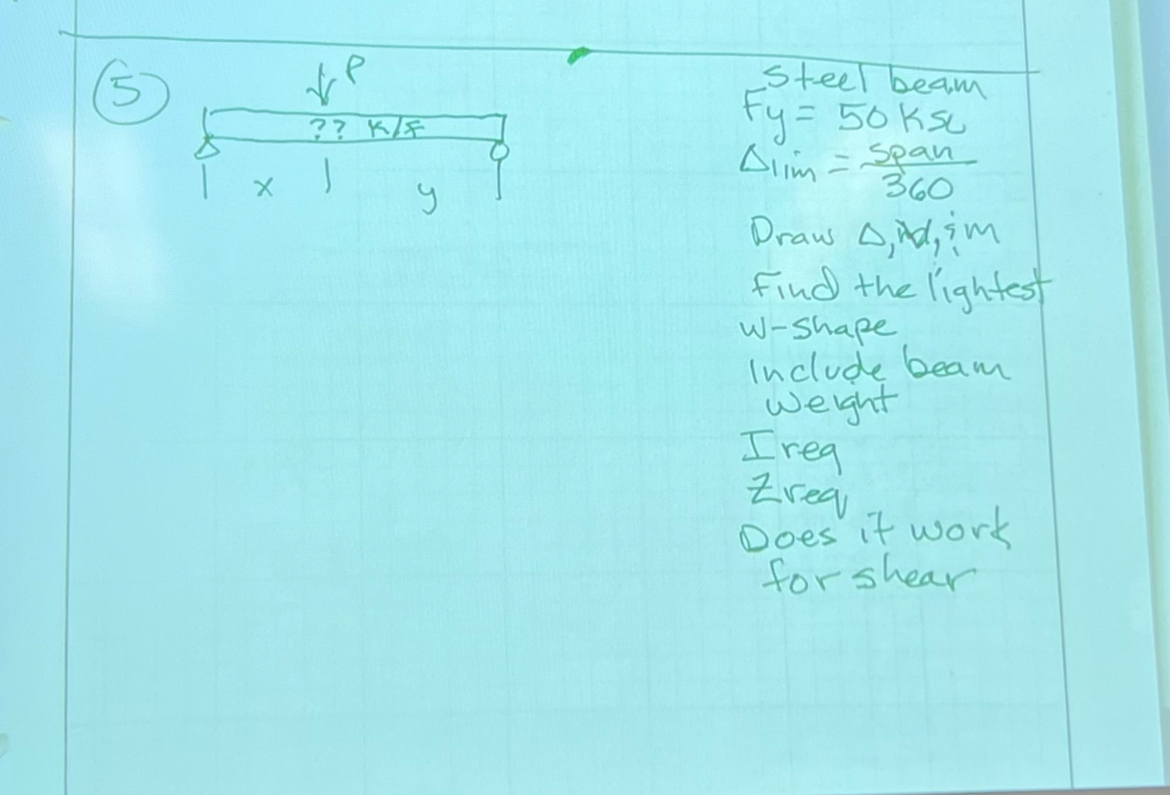 5
P
?? K/F
x
y
Steel beam
Fy = 50 Ksi
Δlim = span
360
Draw Δ, m
Find the lightest
W-shape
Include beam
weight
I req
Z req
Does it work
for shear